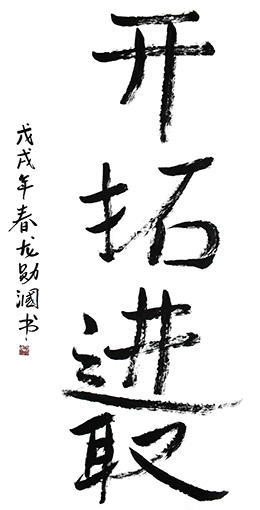 开拓进取
戊戌年春龙勋涠书